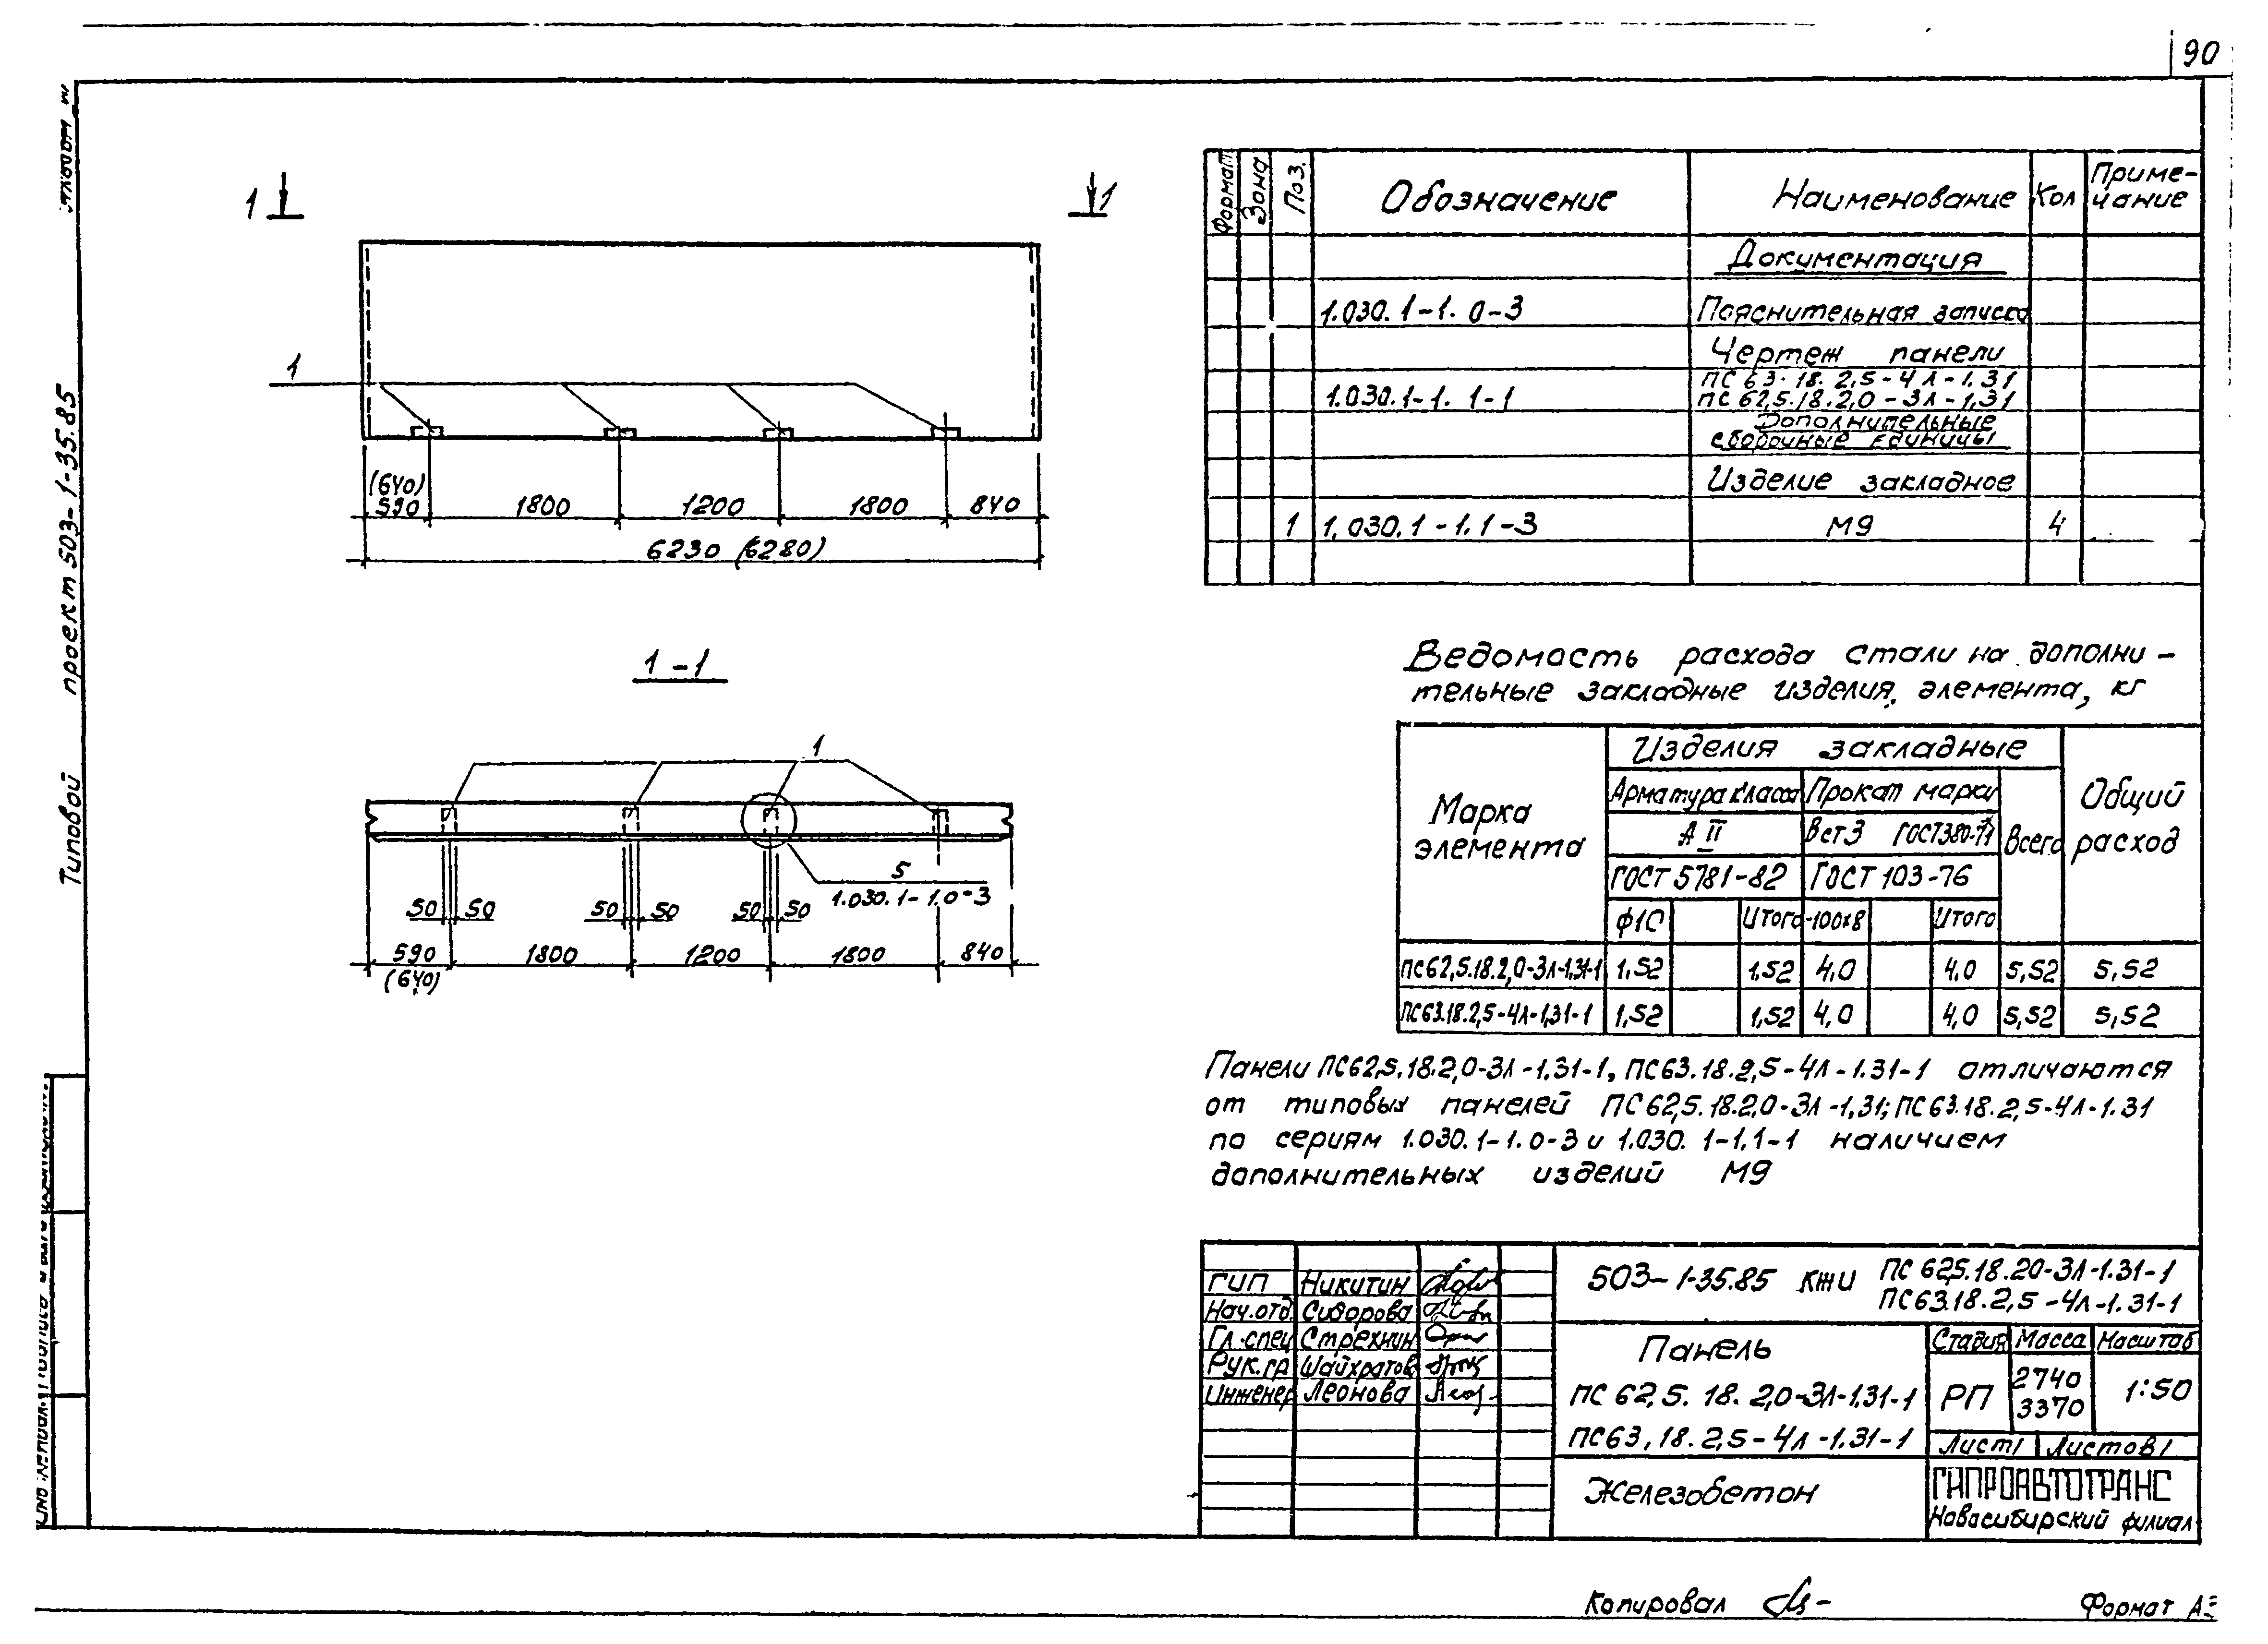 90
Типовой проект 503-1-35.85
1
1
1
(640)
590
1800
1200
1800
840
6230 (6280)
1-1
1
5
1.030.1-1.0-3
50 50
50 50
50 50
590
(640)
1800
1200
1800
840
Формат
Зона
Поз.
Обозначение
Наименование
Кол
Приме-
чание
Документация
1.030.1-1. 0-3
Пояснительная записка
Чертеж панели
1.030.1-1. 1-1
ПС 63.18.2,5-4Л-1.31
ПС 62,5.18.2,0-3Л-1,31
Дополнительные
сборочные единицы
Изделие закладное
1
1.030.1-1.1-3
М9
4
Ведомость расхода стали на дополни-
тельные закладные изделия, элемента, кг
Марка
элемента
Изделия закладные
Общий
расход
Арматура класса
Прокат марки
Всего
А II
Вст3 ГОСТ380-71
ГОСТ 5781-82
ГОСТ 103-76
ф10
Итого
-100х8
Итого
ПС62,5.18.2,0-3Л-1,31-1 1,52 1,52 4,0 4,0 5,52 5,52
ПС63.18.2,5-4Л-1,31-1 1,52 1,52 4,0 4,0 5,52 5,52
Панели ПС62,5.18.2,0-3Л-1.31-1, ПС63.18.2,5-4Л-1.31-1 отличаются
от типовых панелей ПС62,5.18.2,0-3Л-1,31; ПС63.18.2,5-4Л-1.31
по сериям 1.030.1-1.0-3 и 1.030.1-1.1-1 наличием
дополнительных изделий М9
ГИП Никитин
Нач.отд. Сидорова
Гл.спец Стрехнин
Рук.гр Шайхратов
Инженер Леонова
503-1-35.85 КЖИ
ПС 62,5.18.20-3Л-1.31-1
ПС63.18.2,5-4Л-1.31-1
Панель
ПС 62,5. 18. 2,0-3Л-1,31-1
ПС63,18.2,5-4Л-1.31-1
Стадия Масса Масштаб
РП
2740
3370
1:50
Лист 1
Листов 1
Железобетон
ГИПРОАВТОТРАНС
Новосибирский филиал
Копировал
Формат А3